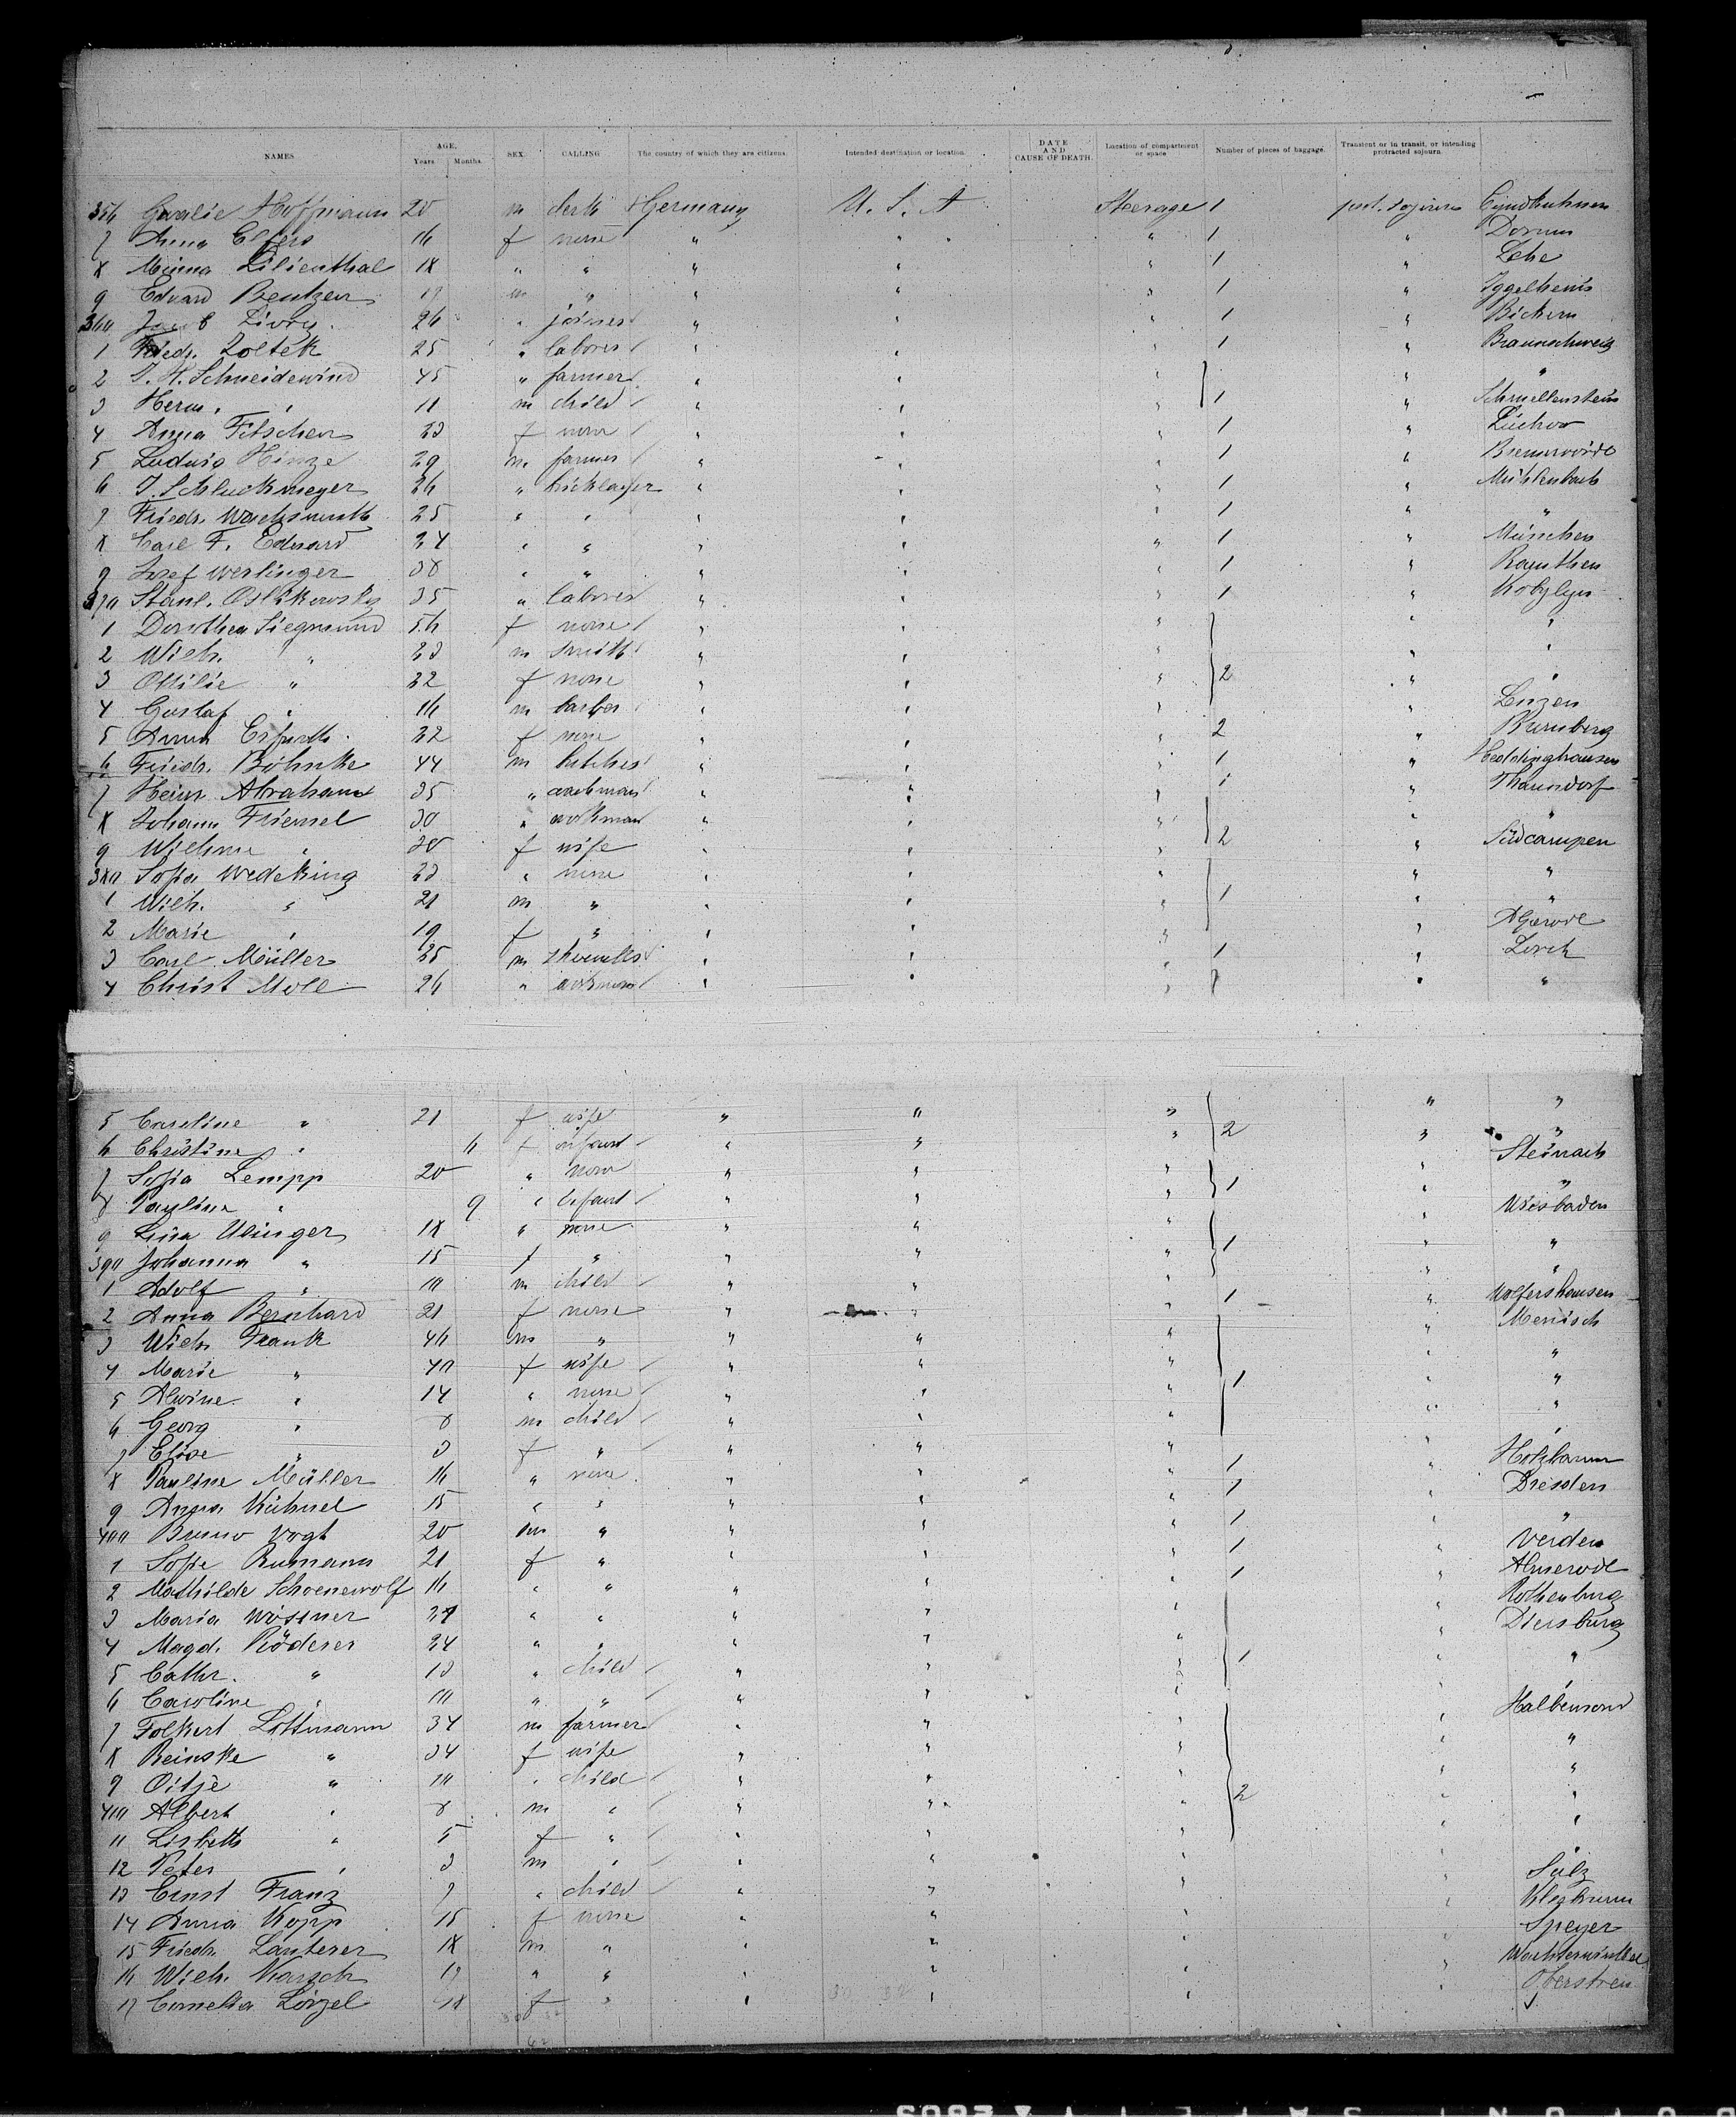 NAMES AGE. Years Months SEX. CALLING The country of which they are citizens. Intended destination or location. DATE AND CAUSE OF DEATH. Location of compartment or space Number of pieces of baggage. Transient or in transit, or intending protracted sojourn.
356 Hoffmann 20 m clerk Germany U. S. A Steerage 1
7 Anna Elfers 16 f none " " " 1 " Dorum
8 Minna Lilienthal 18 " " " " " 1 " Lehe
9 Eduard Bentzen 17 m " " " " 1 "
360 26 " joiner " " 1 "
1 Friedr. Zoltek 25 " laborer " " " 1 " Braunschweig
2 J. H. Schneidewind 45 " farmer " " " " "
3 Herm. " 11 m child " " " 1 "
4 Anna Fitschen 23 f none " " " 1 " Lüchow
5 Ludwig Hinze 29 m farmer " " " 1 "
6 J. Schluckmeyer 26 " bricklayer " " " 1 " Mühlenbach
7 Friedr. Wachsmuth 25 " " " " " 1 " "
8 Carl F. Eduard 24 " " " " " 1 " München
9 Josef Werlinger 38 " " " " " 1 " Rauthen
370 Stanl. 35 " laborer " " " 1 " Kobylyn
1 Dorothea Siegmund 56 f none " " " " "
2 Wilh. " 23 m smith " " " " "
3 Ottilie " 22 f none " " " 2 " "
4 Gustaf " 16 m barber " " " "
5 Anna Erfurth 22 f none " " " 2 "
6 Friedr. Böhnke 44 m butcher " " " 1 "
7 Heinr. Abraham 35 " workman " " " 1 " Thaundorf
8 Johann Friemel 30 " workman " " " " "
9 Wilhme " 30 f wife " " " 2 " Südcampen
380 Sofia Wedeking 23 " none " " " " "
1 Wilh. " 21 m " " " " 1 " "
2 Marie " 19 f " " " " "
3 Carl Müller 25 m " " " 1 " Lorch
4 Christ Moll 26 " workman " " " " "
5 Caroline " 21 f wife " " " " "
6 Christine " 11 f infant " " " 2 " "
7 Sofia Lempp 20 " none " " " " Steinach
8 Pauline " 9 " infant " " " 1 " "
9 Lina Ulinger 18 " none " " " " Wiesbaden
390 Johanna " 15 f " " " " 1 " "
1 Adolf " 10 m child " " " " "
2 Anna Bernhard 21 f none " " " 1 " Wolfershausen
3 Wilh. Frank 46 m " " " " " Menisch
4 Marie " 40 f wife " " " " "
5 Alwine " 14 " none " " " 1 " "
6 Georg " 8 m child " " " " "
7 Elise " 3 f " " " " "
8 Pauline Müller 16 " none " " " 1 "
9 Anna Kühnel 15 " " " " " 1 " Dresden
400 Bruno Vogt 20 m " " " " 1 " "
1 Sofie Rumann 21 f " " " " 1 " Verden
2 Mathilde Schoenewolf 16 " " " " " 1 " Almerode
3 Maria Wössner 27 " " " " " " Rothenburg
4 Magd. Röderer 24 " " " " " " Diersburg
5 Cathr. " 13 " child " " " 1 " "
6 Caroline " 10 " " " " " " "
7 Folkert Lottmann 34 m farmer " " " " Halbemond
8 Reinske " 34 f wife " " " " "
9 Oitje " 10 " child " " " " "
410 Albert " 8 m " " " " 2 " "
11 Lisbeth " 5 f " " " " " "
12 Peter " 3 m " " " " " "
13 Ernst Franz 7 " child " " " " Sulz
14 Anna Kopp 15 f none " " " "
15 Friedr. Lauterer 18 m " " " " " Speyer
16 Wilh. Karsch 17 " " " " " "
17 Cornelia Lörzel 18 f " " " "